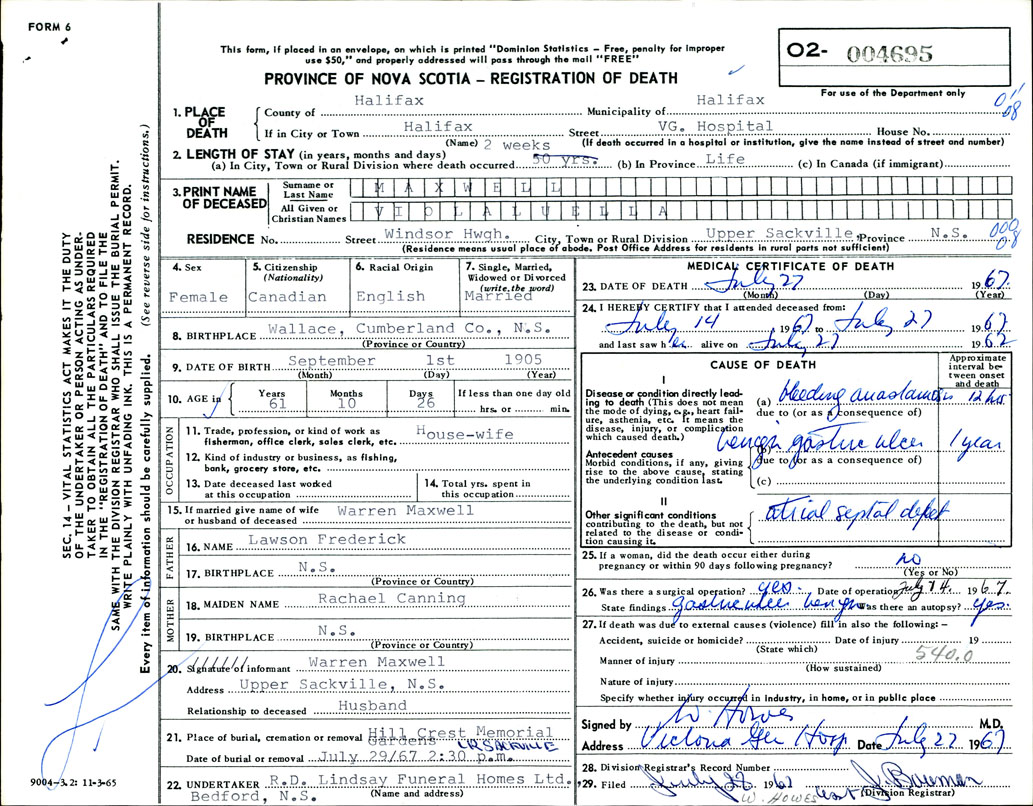 FORM 6
This form, if placed in an envelope, on which is printed "Dominion Statistics – Free, penalty for improper
use $50," and properly addressed will pass through the mail "FREE"
PROVINCE OF NOVA SCOTIA – REGISTRATION OF DEATH
02- 004695
For use of the Department only
1. PLACE OF DEATH
County of Halifax Municipality of Halifax
If in City or Town Halifax Street VG. Hospital House No.
(Name) (If death occurred in a hospital or institution, give the name instead of street and number)
2. LENGTH OF STAY (in years, months and days) 2 weeks
(a) In City, Town or Rural Division where death occurred 50 yrs. (b) In Province Life (c) In Canada (if immigrant)
3. PRINT NAME OF DECEASED
Surname or Last Name MAXWELL
All Given or Christian Names VIOLA LUELLA
RESIDENCE No. Street Windsor Hwgh. City, Town or Rural Division Upper Sackville, Province N.S.
(Residence means usual place of abode. Post Office Address for residents in rural parts not sufficient)
4. Sex
Female
5. Citizenship
(Nationality)
Canadian
6. Racial Origin
English
7. Single, Married,
Widowed or Divorced
(write the word)
Married
8. BIRTHPLACE Wallace, Cumberland Co., N.S.
(Province or Country)
9. DATE OF BIRTH September 1st 1905
(Month) (Day) (Year)
10. AGE in
Years 61 Months 10 Days 26
If less than one day old
hrs. or min.
OCCUPATION
11. Trade, profession, or kind of work as
fisherman, office clerk, sales clerk, etc. House-wife
12. Kind of industry or business, as fishing,
bank, grocery store, etc.
13. Date deceased last worked
at this occupation
14. Total yrs. spent in
this occupation
15. If married give name of wife
or husband of deceased Warren Maxwell
FATHER
16. NAME Lawson Frederick
17. BIRTHPLACE N.S.
(Province or Country)
MOTHER
18. MAIDEN NAME Rachael Canning
19. BIRTHPLACE N.S.
(Province or Country)
20. Signature of informant Warren Maxwell
Address Upper Sackville, N.S.
Relationship to deceased Husband
21. Place of burial, cremation or removal Hill Crest Memorial
Gardens UP. SACKVILLE
Date of burial or removal July 29/67 2:30 p.m.
22. UNDERTAKER R.D. Lindsay Funeral Homes Ltd.
Bedford, N.S. (Name and address)
MEDICAL CERTIFICATE OF DEATH
23. DATE OF DEATH July 27 1967.
(Month) (Day) (Year)
24. I HEREBY CERTIFY that I attended deceased from:
July 14 1967 to July 27 1967
and last saw her alive on July 27 1967
CAUSE OF DEATH
Approximate
interval be-
tween onset
and death
I
Disease or condition directly lead-
ing to death (This does not mean
the mode of dying, e.g., heart fail-
ure, asthenia, etc. It means the
disease, injury, or complication
which caused death.)
(a) bleeding anastomosis 12 hrs
due to (or as a consequence of)
(b) benign gastric ulcer 1 year
Antecedent causes
Morbid conditions, if any, giving
rise to the above cause, stating
the underlying condition last.
due to (or as a consequence of)
(c)
II
Other significant conditions
contributing to the death, but not
related to the disease or condi-
tion causing it.
atrial septal defect
25. If a woman, did the death occur either during
pregnancy or within 90 days following pregnancy? no
(Yes or No)
26. Was there a surgical operation? yes. Date of operation July 14. 1967.
State findings gastric ulcer benign Was there an autopsy? yes.
27. If death was due to external causes (violence) fill in also the following: –
Accident, suicide or homicide? Date of injury 19
(State which)
540.0
Manner of injury
(How sustained)
Nature of injury
Specify whether injury occurred in industry, in home, or in public place
Signed by W. Howes M.D.
Address Victoria Gen Hosp Date July 27 1967
28. Division Registrar's Record Number
29. Filed July 28 1967 J. Bowman
W. HOWES (Division Registrar)
SEC. 14 – VITAL STATISTICS ACT MAKES IT THE DUTY
OF THE UNDERTAKER OR PERSON ACTING AS UNDER-
TAKER TO OBTAIN ALL THE PARTICULARS REQUIRED
IN THE "REGISTRATION OF DEATH" AND TO FILE THE
SAME WITH THE DIVISION REGISTRAR WHO SHALL ISSUE THE BURIAL PERMIT.
WRITE PLAINLY WITH UNFADING INK. THIS IS A PERMANENT RECORD.
Every item of information should be carefully supplied. (See reverse side for instructions.)
9004–3.2: 11-3-65